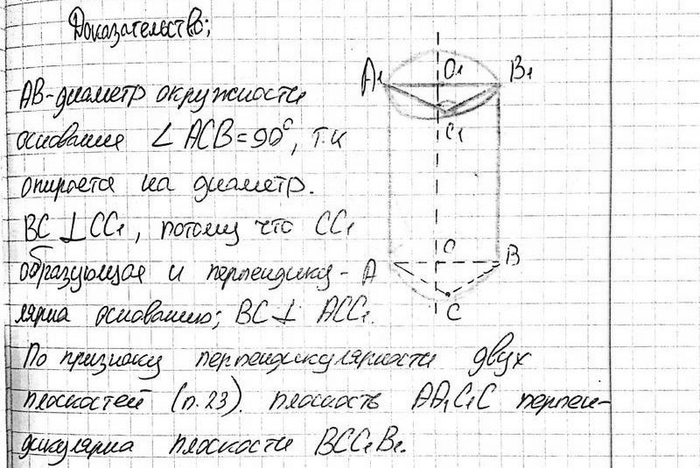 Доказательство:
AB-диаметр окружности
основания ∠ACB=90°, т.к
опирается на диаметр.
BC ⊥ CC₁, потому что CC₁
образующая и перпендику-
лярна основанию; BC ⊥ ACC₁.
По признаку перпендикулярности двух
плоскостей (п.23). плоскость AA₁C₁C перпен-
дикулярна плоскости BCC₁B₁.
A₁ O₁ B₁
C₁
O
A B
C